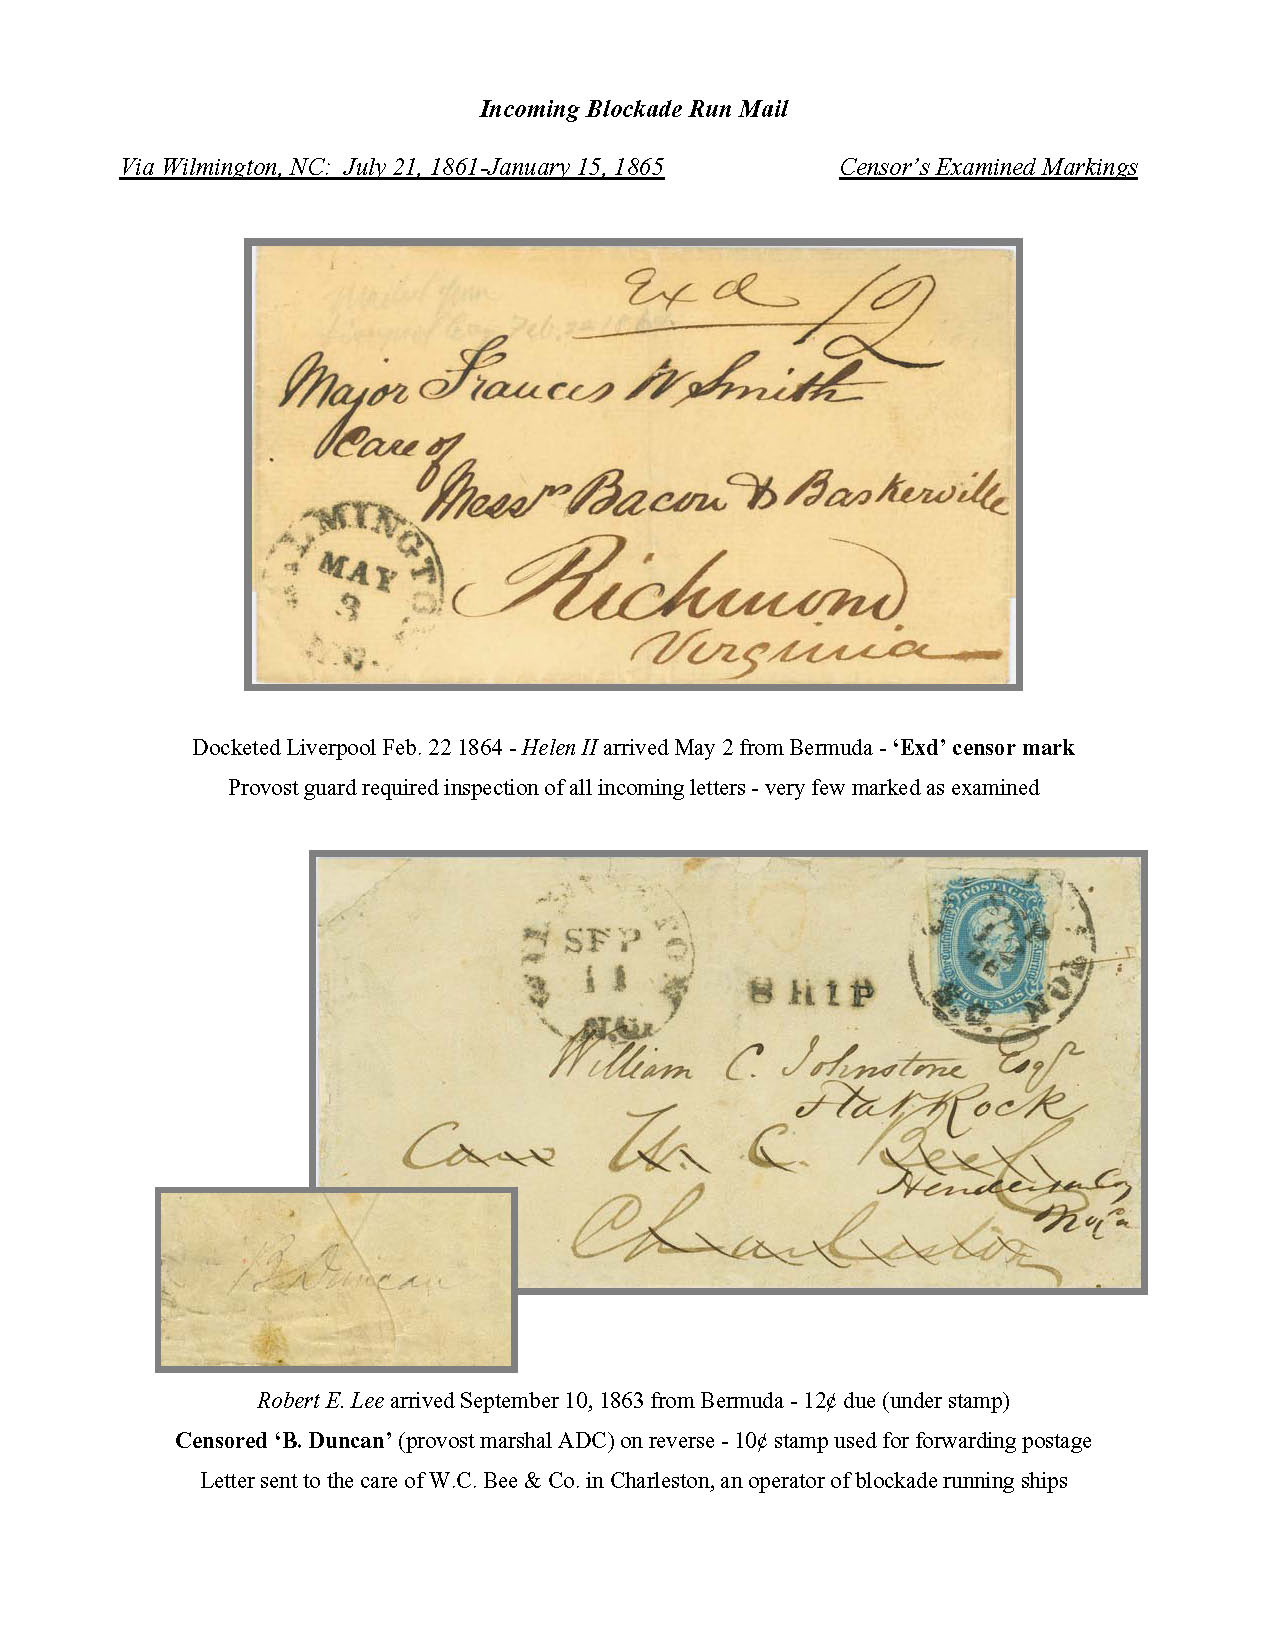 Incoming Blockade Run Mail
Via Wilmington, NC: July 21, 1861-January 15, 1865
Censor's Examined Markings
Exd 12
Feb. 22 186
Major Frances W Smith
Care of
Messrs Bacon & Baskerville
Richmond
Virginia
WILMINGTON
MAY
3
N.C.
Docketed Liverpool Feb. 22 1864 - Helen II arrived May 2 from Bermuda - ‘Exd’ censor mark
Provost guard required inspection of all incoming letters - very few marked as examined
WILMINGTON
SEP
11
N.C.
SHIP
POSTAGE
CENTS
S.C.
William C. Johnstone Esqr
Flat Rock
Care W. C. Bee
Henderson Coy
No Ca
Charleston
B. Duncan
Robert E. Lee arrived September 10, 1863 from Bermuda - 12¢ due (under stamp)
Censored ‘B. Duncan’ (provost marshal ADC) on reverse - 10¢ stamp used for forwarding postage
Letter sent to the care of W.C. Bee & Co. in Charleston, an operator of blockade running ships